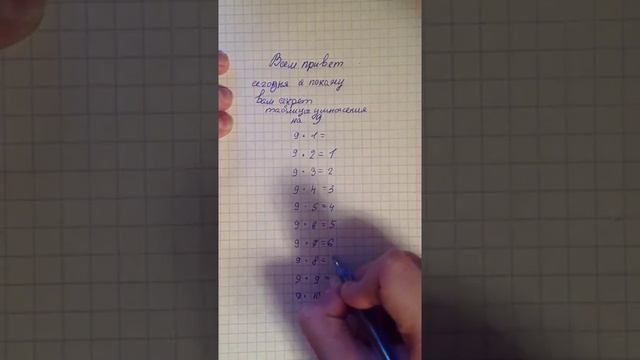 Всем привет
сегодня я покажу
вам секрет
таблица умножения
на 9
9 · 1 =
9 · 2 = 1
9 · 3 = 2
9 · 4 = 3
9 · 5 = 4
9 · 6 = 5
9 · 7 = 6
9 · 8 =
9 · 9 =
9 · 10